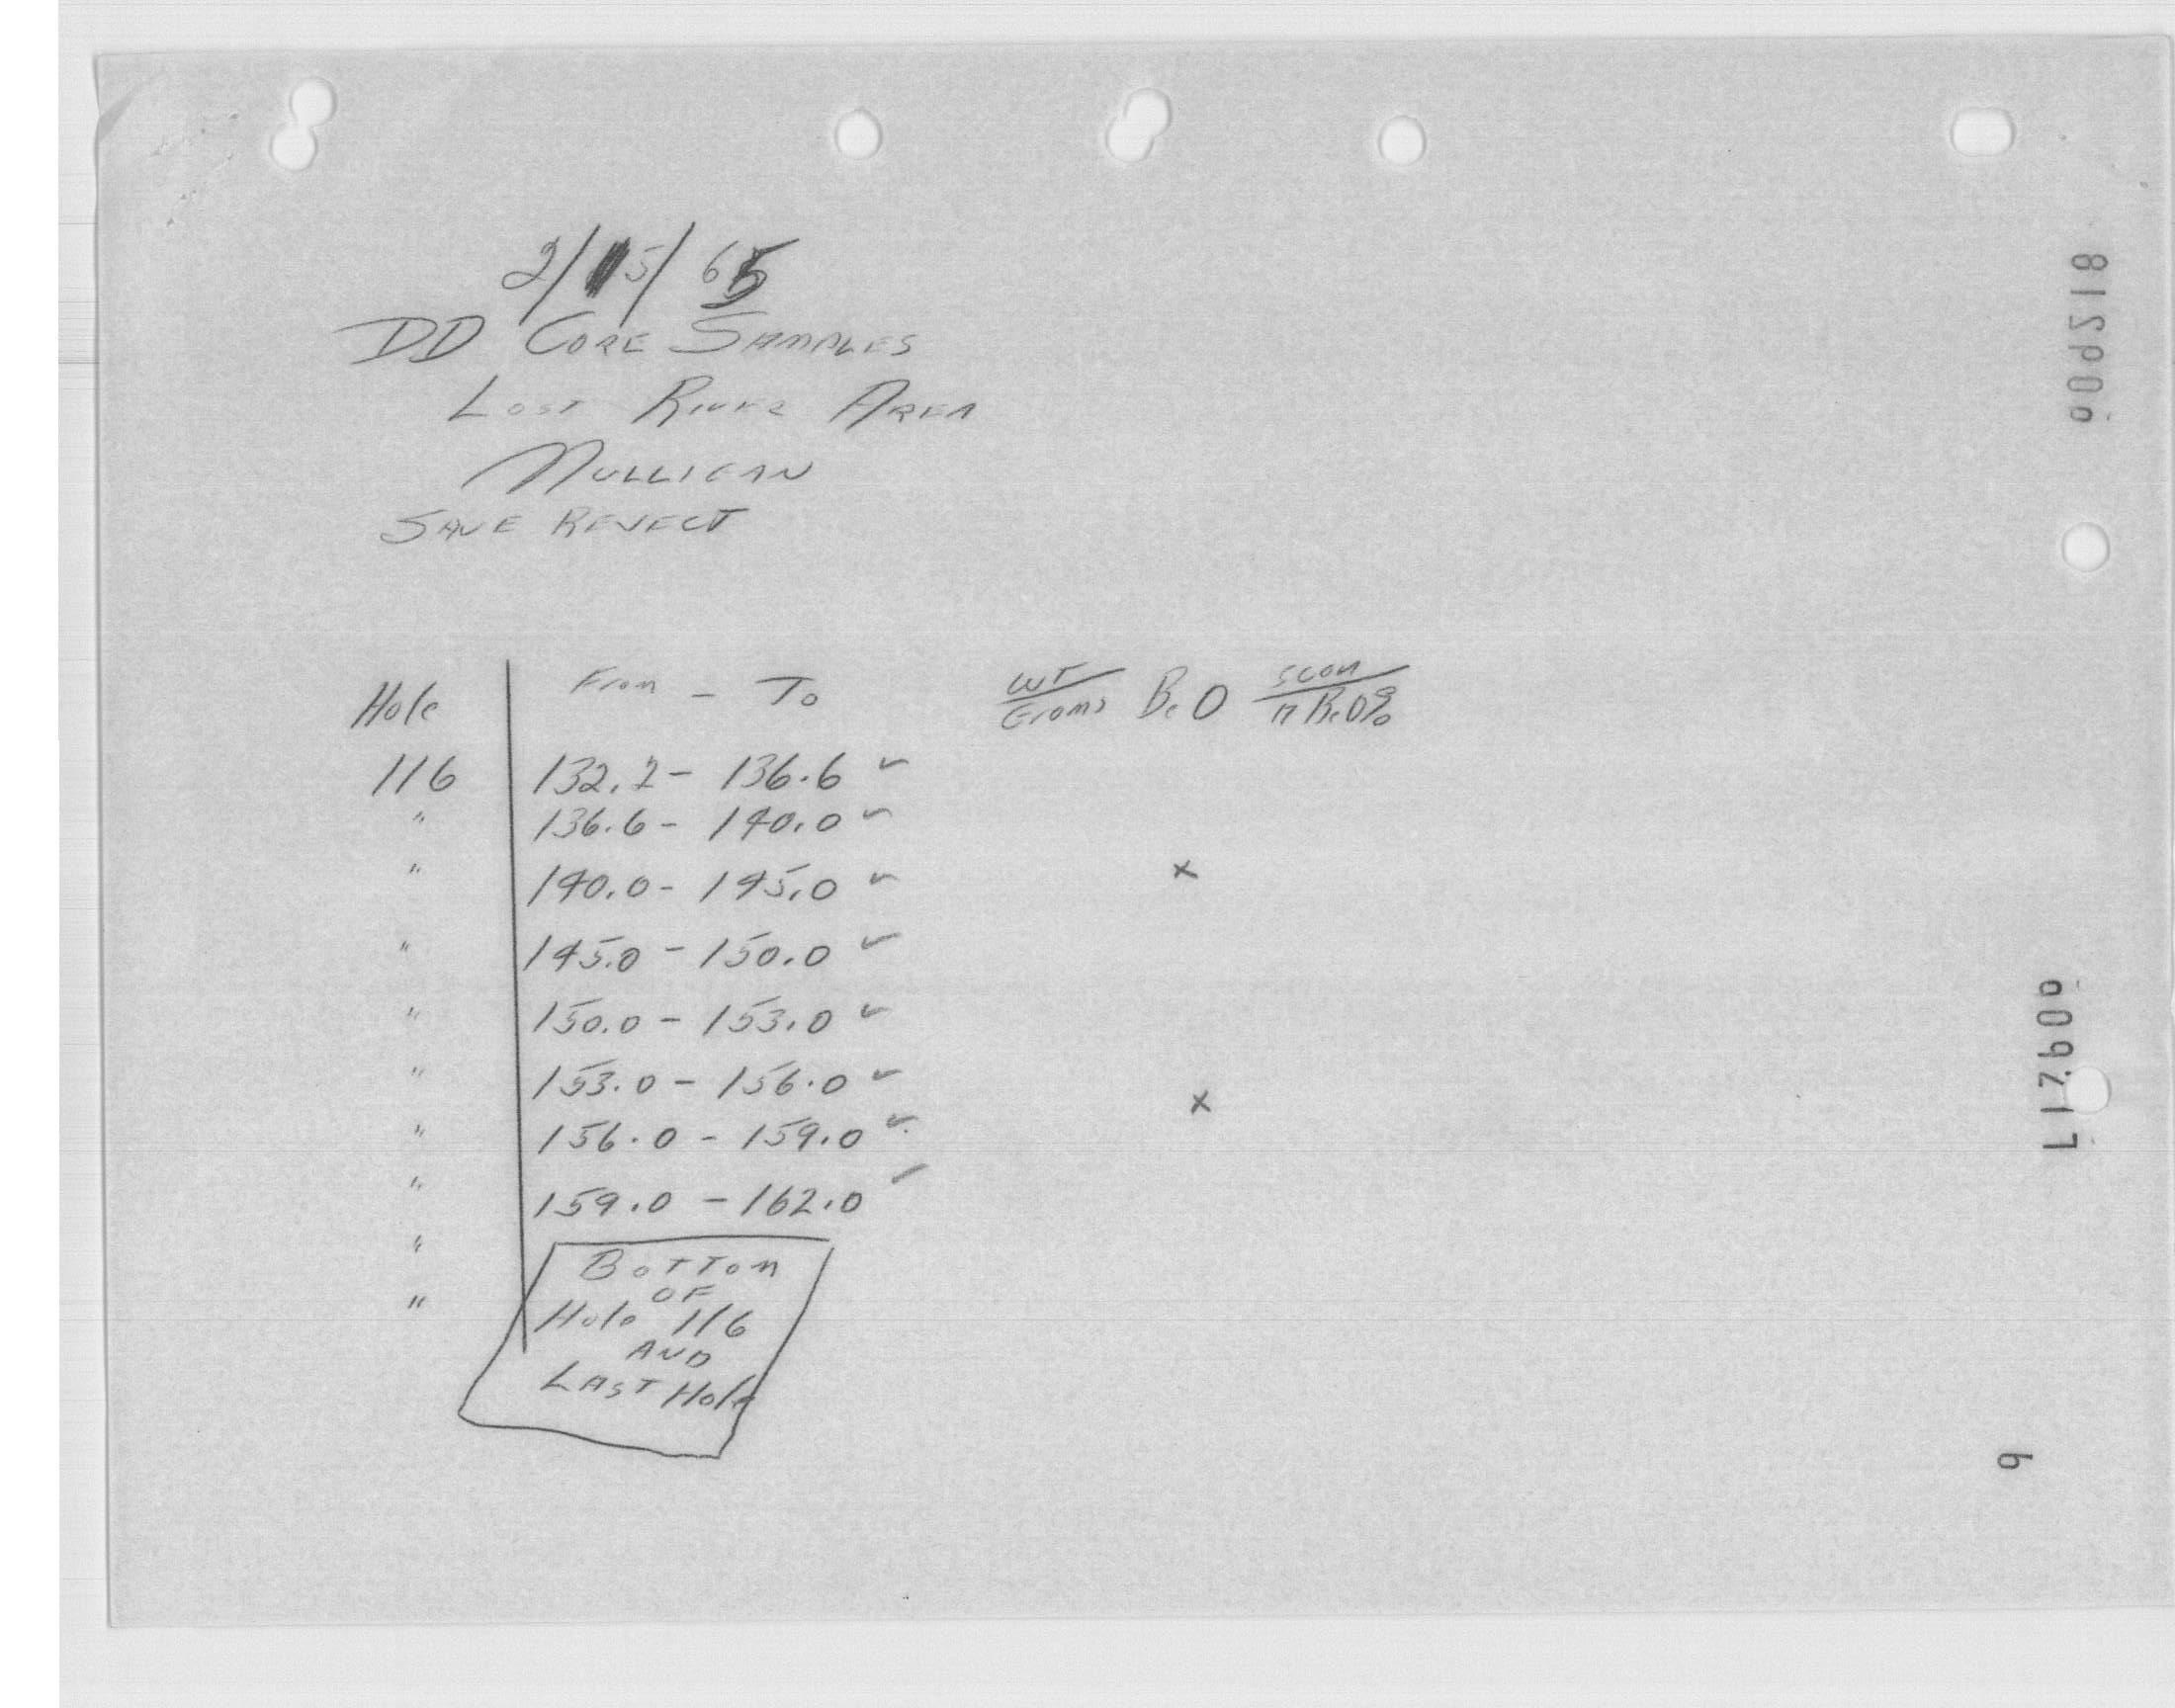 2/15/65
DD CORE SAMPLES
LOST RIVER AREA
MULLIGAN
SAVE REJECT
Hole From - To WT/Grams BeO scan/n BeO%
116 132.2 - 136.6 ✓
" 136.6 - 140.0 ✓
" 140.0 - 145.0 ✓ x
" 145.0 - 150.0 ✓
" 150.0 - 153.0 ✓
" 153.0 - 156.0 ✓ x
" 156.0 - 159.0 ✓
" 159.0 - 162.0 ✓
" BOTTOM
OF
" Hole 116
AND
LAST Hole